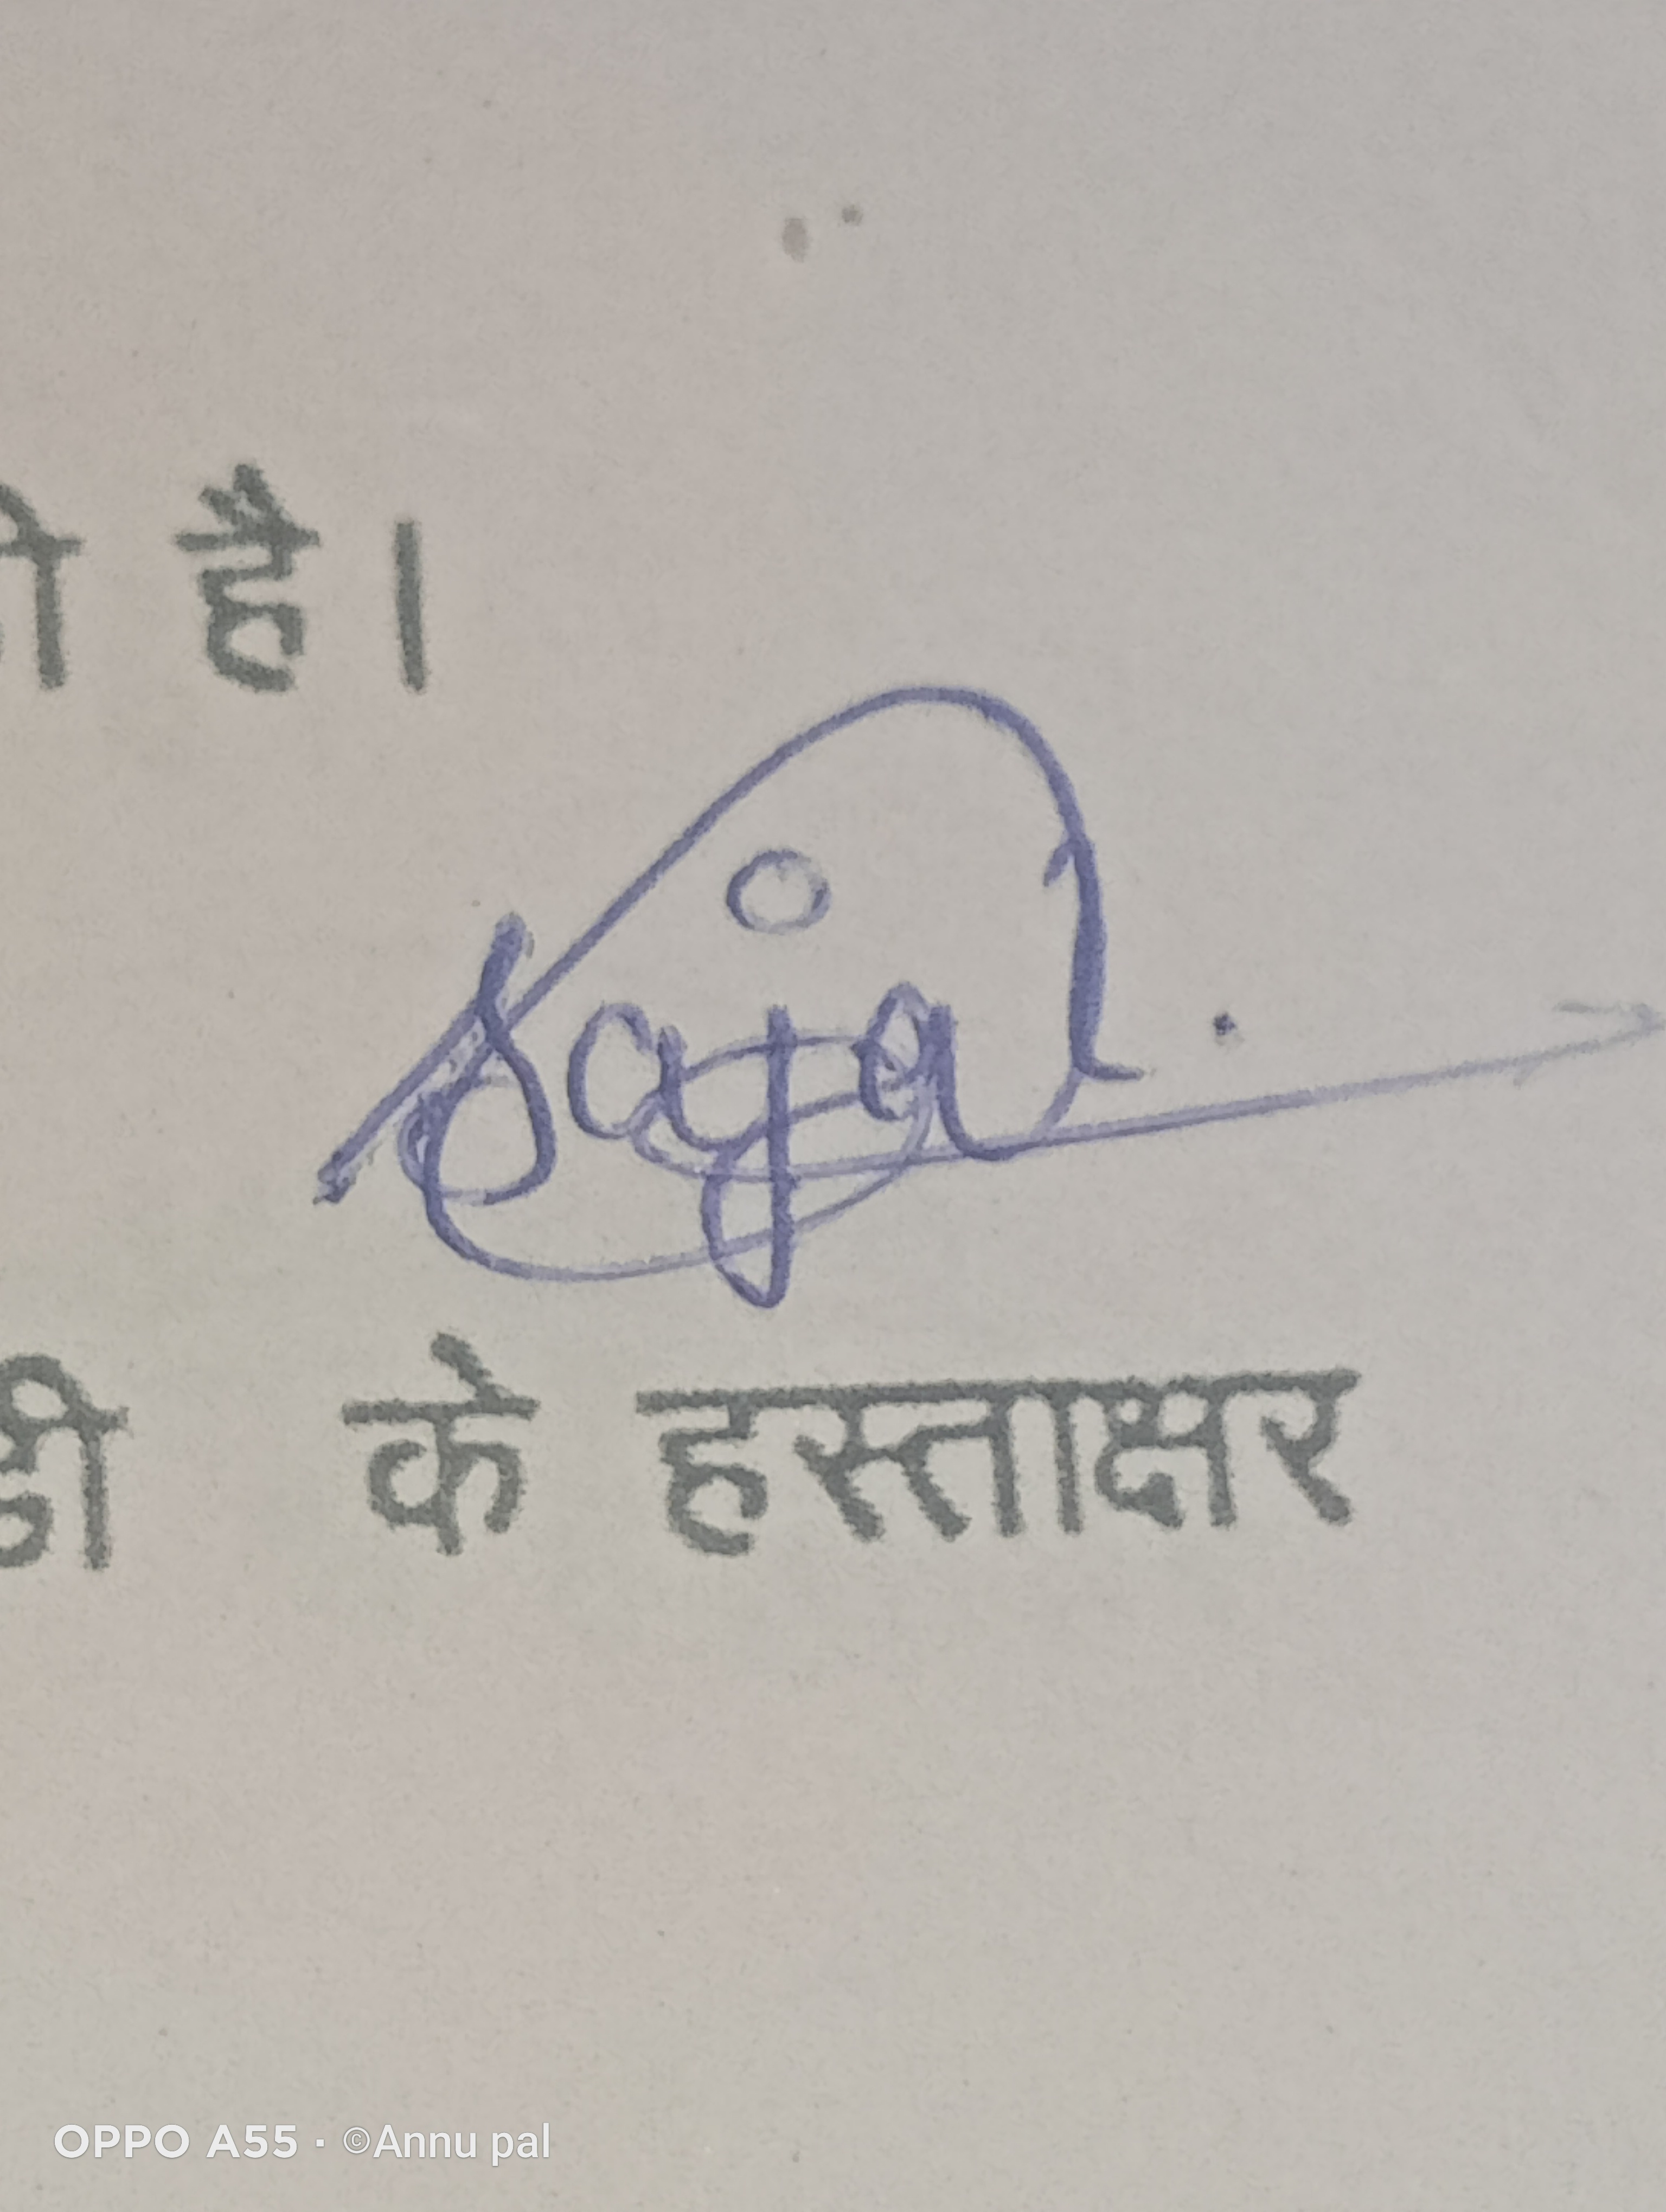 है।
Sajal.
के हस्ताक्षर
OPPO A55 · ©Annu pal